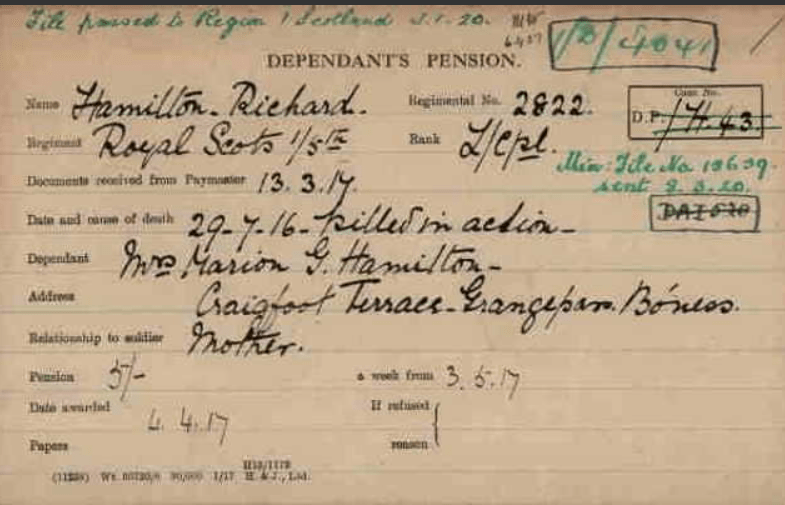 File passed to Region 1 Scotland 5.1.20.
1/D/4041
DEPENDANT'S PENSION.
Name Hamilton - Richard. Regimental No. 2822.
Case No.
D.P. /H.43.
Regiment Royal Scots 1/5th Rank L/Cpl.
Min: File No 13639.
sent 8.3.20.
Documents received from Paymaster 13.3.17.
Date and cause of death 29-7-16 - killed in action -
Dependant Mrs Marion G. Hamilton -
Address Craigfoot Terrace - Grangepans. Bo'ness.
Relationship to soldier Mother.
Pension 5/- a week from 3.5.17
Date awarded 4.4.17 If refused
Papers reason
H19/1178
90,000 1/17 H. & J., Ltd.